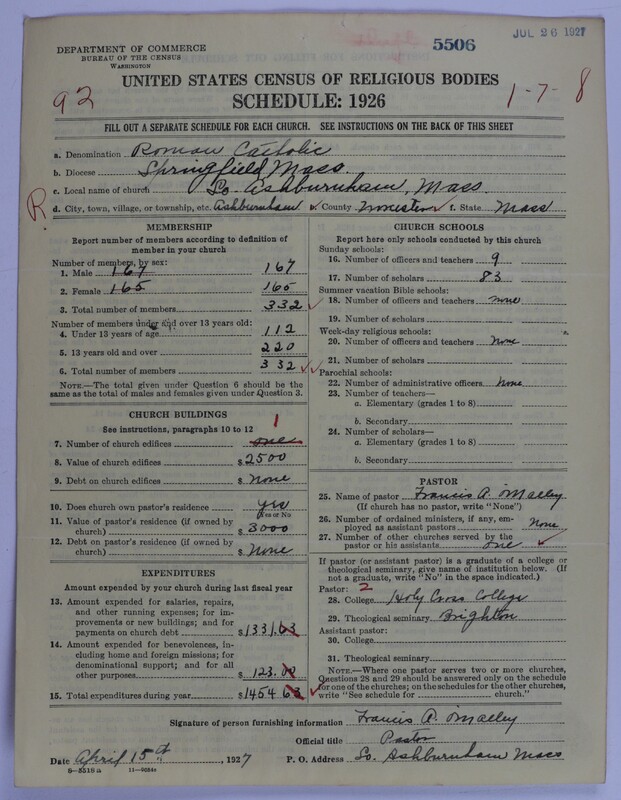 DEPARTMENT OF COMMERCE
BUREAU OF THE CENSUS
WASHINGTON
5506
JUL 26 1927
UNITED STATES CENSUS OF RELIGIOUS BODIES
SCHEDULE: 1926
92
1-7-8
FILL OUT A SEPARATE SCHEDULE FOR EACH CHURCH. SEE INSTRUCTIONS ON THE BACK OF THIS SHEET
a. Denomination Roman Catholic
b. Diocese Springfield Mass.
c. Local name of church So. Ashburnham, Mass.
R
d. City, town, village, or township, etc. Ashburnham e. County Worcester f. State Mass
MEMBERSHIP
Report number of members according to definition of
member in your church
Number of members, by sex:
1. Male 167 167
2. Female 165 165
3. Total number of members 332
Number of members under and over 13 years old:
4. Under 13 years of age 112
5. 13 years old and over 220
6. Total number of members 332
NOTE.—The total given under Question 6 should be the
same as the total of males and females given under Question 3.
CHURCH BUILDINGS
See instructions, paragraphs 10 to 12
1
7. Number of church edifices one
8. Value of church edifices $2500
9. Debt on church edifices $ None
10. Does church own pastor's residence yes
(Yes or No)
11. Value of pastor's residence (if owned by
church) $3000
12. Debt on pastor's residence (if owned by
church) $ None
EXPENDITURES
Amount expended by your church during last fiscal year
13. Amount expended for salaries, repairs,
and other running expenses; for im-
provements or new buildings; and for
payments on church debt $1331.63
14. Amount expended for benevolences, in-
cluding home and foreign missions; for
denominational support; and for all
other purposes $ 123.00
15. Total expenditures during year $1454 63
CHURCH SCHOOLS
Report here only schools conducted by this church
Sunday schools:
16. Number of officers and teachers 9
17. Number of scholars 83
Summer vacation Bible schools:
18. Number of officers and teachers none
19. Number of scholars
Week-day religious schools:
20. Number of officers and teachers None
21. Number of scholars
Parochial schools:
22. Number of administrative officers None
23. Number of teachers—
a. Elementary (grades 1 to 8)
b. Secondary
24. Number of scholars—
a. Elementary (grades 1 to 8)
b. Secondary
PASTOR
25. Name of pastor Francis A. O'Malley
(If church has no pastor, write "None")
26. Number of ordained ministers, if any, em-
ployed as assistant pastors None
27. Number of other churches served by the
pastor or his assistants one
If pastor (or assistant pastor) is a graduate of a college or
theological seminary, give name of institution below. (If
not a graduate, write "No" in the space indicated.)
Pastor: 2
28. College Holy Cross College
29. Theological seminary Brighton
Assistant pastor:
30. College
31. Theological seminary
NOTE.—Where one pastor serves two or more churches,
Questions 28 and 29 should be answered only on the schedule
for one of the churches; on the schedules for the other churches,
write "See schedule for church."
Signature of person furnishing information Francis A. O'Malley
Official title Pastor
Date April 15th, 1927 P. O. Address So. Ashburnham Mass